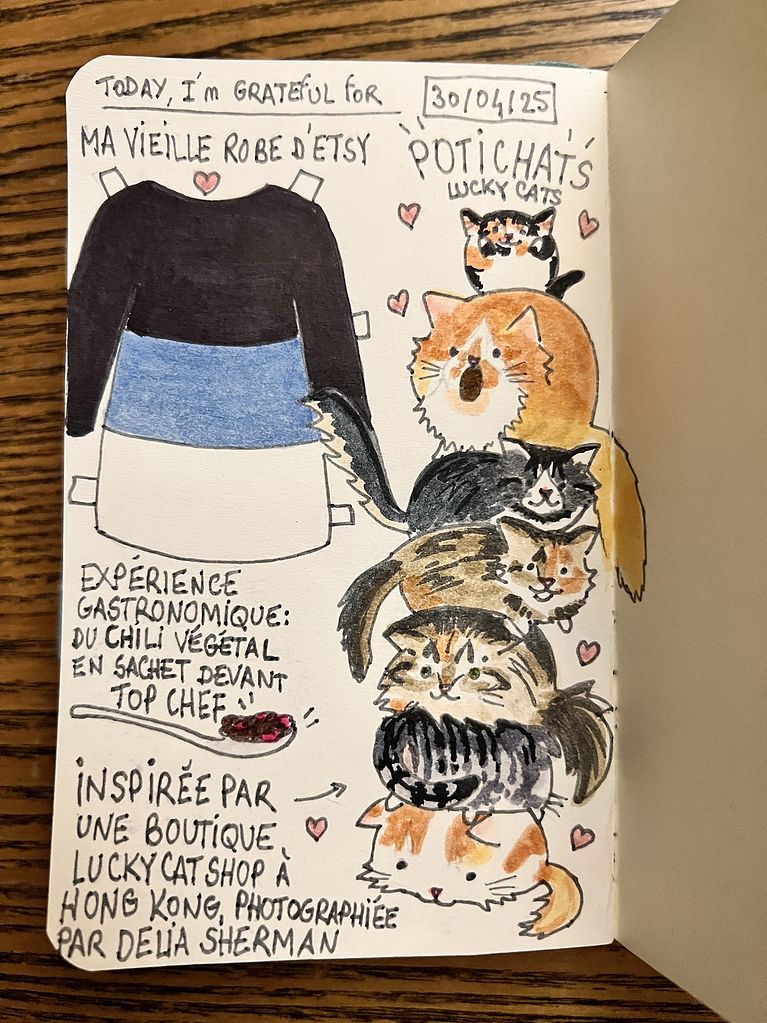 TODAY, I'm GRATEFUL FOR
30/04/25
MA VIEILLE ROBE D'ETSY
POTICHATS
LUCKY CATS
EXPÉRIENCE
GASTRONOMIQUE:
DU CHILI VÉGÉTAL
EN SACHET DEVANT
TOP CHEF
INSPIRÉE PAR
UNE BOUTIQUE
LUCKY CAT SHOP À
HONG KONG, PHOTOGRAPHIÉE
PAR DELIA SHERMAN